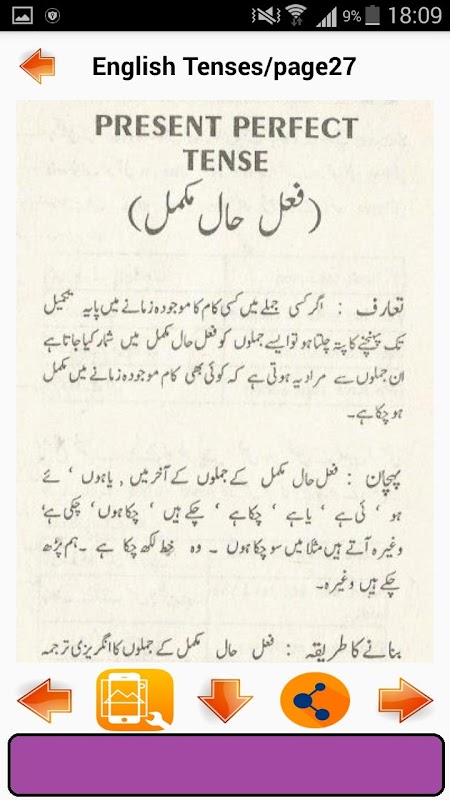 9% 18:09
English Tenses/page27
PRESENT PERFECT
TENSE
(فعل حال مکمل)
تعارف : اگر کسی جملے میں کسی کام کا موجودہ زمانے میں پایہ تکمیل
تک پہنچنے کا پتہ چلتا ہو تو ایسے جملوں کو فعل حال مکمل میں شمار کیا جاتا ہے
ان جملوں سے مراد یہ ہوتی ہے کہ کوئی بھی کام موجودہ زمانے میں مکمل
ہو چکا ہے۔
پہچان : فعل حال مکمل کے جملوں کے آخر میں , یا ہوں ‘ ئے
ہو ‘ ئی ہے ‘ یا ہے ‘ چکا ہے ‘ چکے ہیں ‘ چکا ہوں‘ چکی ہے‘
وغیرہ آتے ہیں مثلا میں سو چکا ہوں ۔ وہ خط لکھ چکا ہے ۔ ہم پڑھ
چکے ہیں وغیرہ۔
بنانے کا طریقہ : فعل حال مکمل کے جملوں کا انگریزی ترجمہ